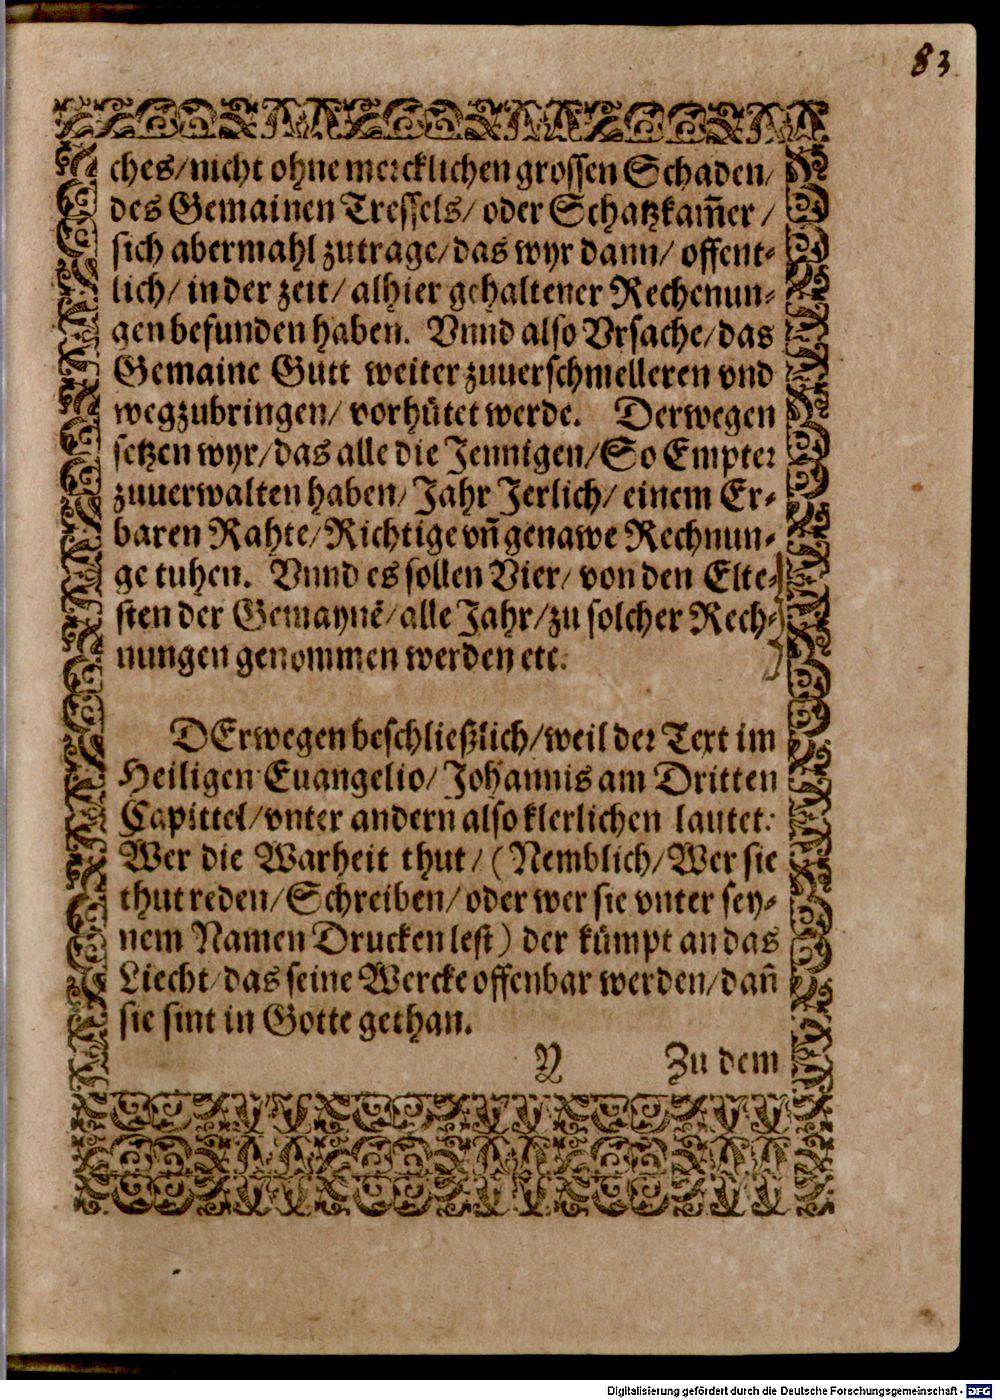 83
ches/nicht ohne mercklichen grossen Schaden/
des Gemainen Tressels/ oder Schatzkam̄er /
sich abermahl zutrage/das wyr dann/ offent⸗
lich/ in der zeit/ alhier gehaltener Rechenun⸗
gen befunden haben. Vnnd also Vrsache/das
Gemaine Gutt weiter zuuerschmelleren vnd
wegzubringen/ vorhütet werde. Derwegen
setzen wyr/das alle die Jennigen/So Empter
zuuerwalten haben/Jahr Jerlich/ einem Er⸗
baren Rahte/Richtige vn̄ genawe Rechnun⸗
ge tuhen. Vnnd es sollen Vier/ von den Elte⸗
sten der Gemaynē/alle Jahr/zu solcher Rech⸗
nungen genommen werden etc.
DErwegen beschließlich/weil der Text im
Heiligen Euangelio/Johannis am Dritten
Capittel/vnter andern also klerlichen lautet:
Wer die Warheit thut/ (Nemblich/Wer sie
thut reden/Schreiben/ oder wer sie vnter sey⸗
nem Namen Drucken lest) der kümpt an das
Liecht/das seine Wercke offenbar werden/dan̄
sie sint in Gotte gethan.
Y Zu dem
Digitalisierung gefördert durch die Deutsche Forschungsgemeinschaft - DFG